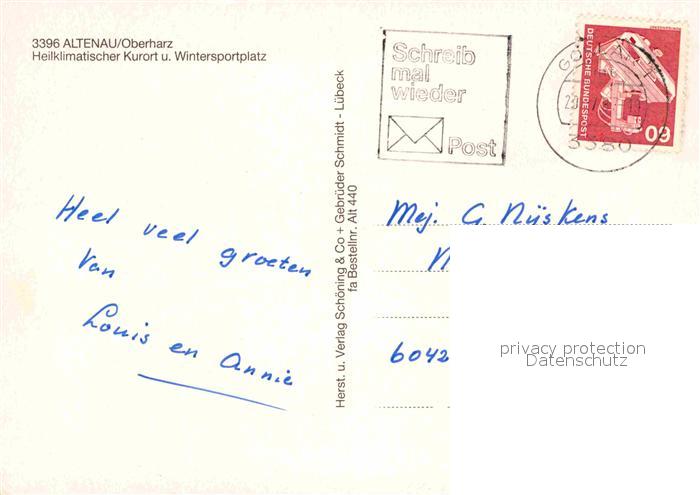 3396 ALTENAU/Oberharz
Heilklimatischer Kurort u. Wintersportplatz
Schreib
mal
wieder
Post
DEUTSCHE BUNDESPOST
60
3380
Heel veel groeten
van
Louis en Annie
Herst. u. Verlag Schöning & Co + Gebrüder Schmidt - Lübeck
fa Bestellnr. Alt 440
Mej. G. Nüskens
6042
privacy protection
Datenschutz